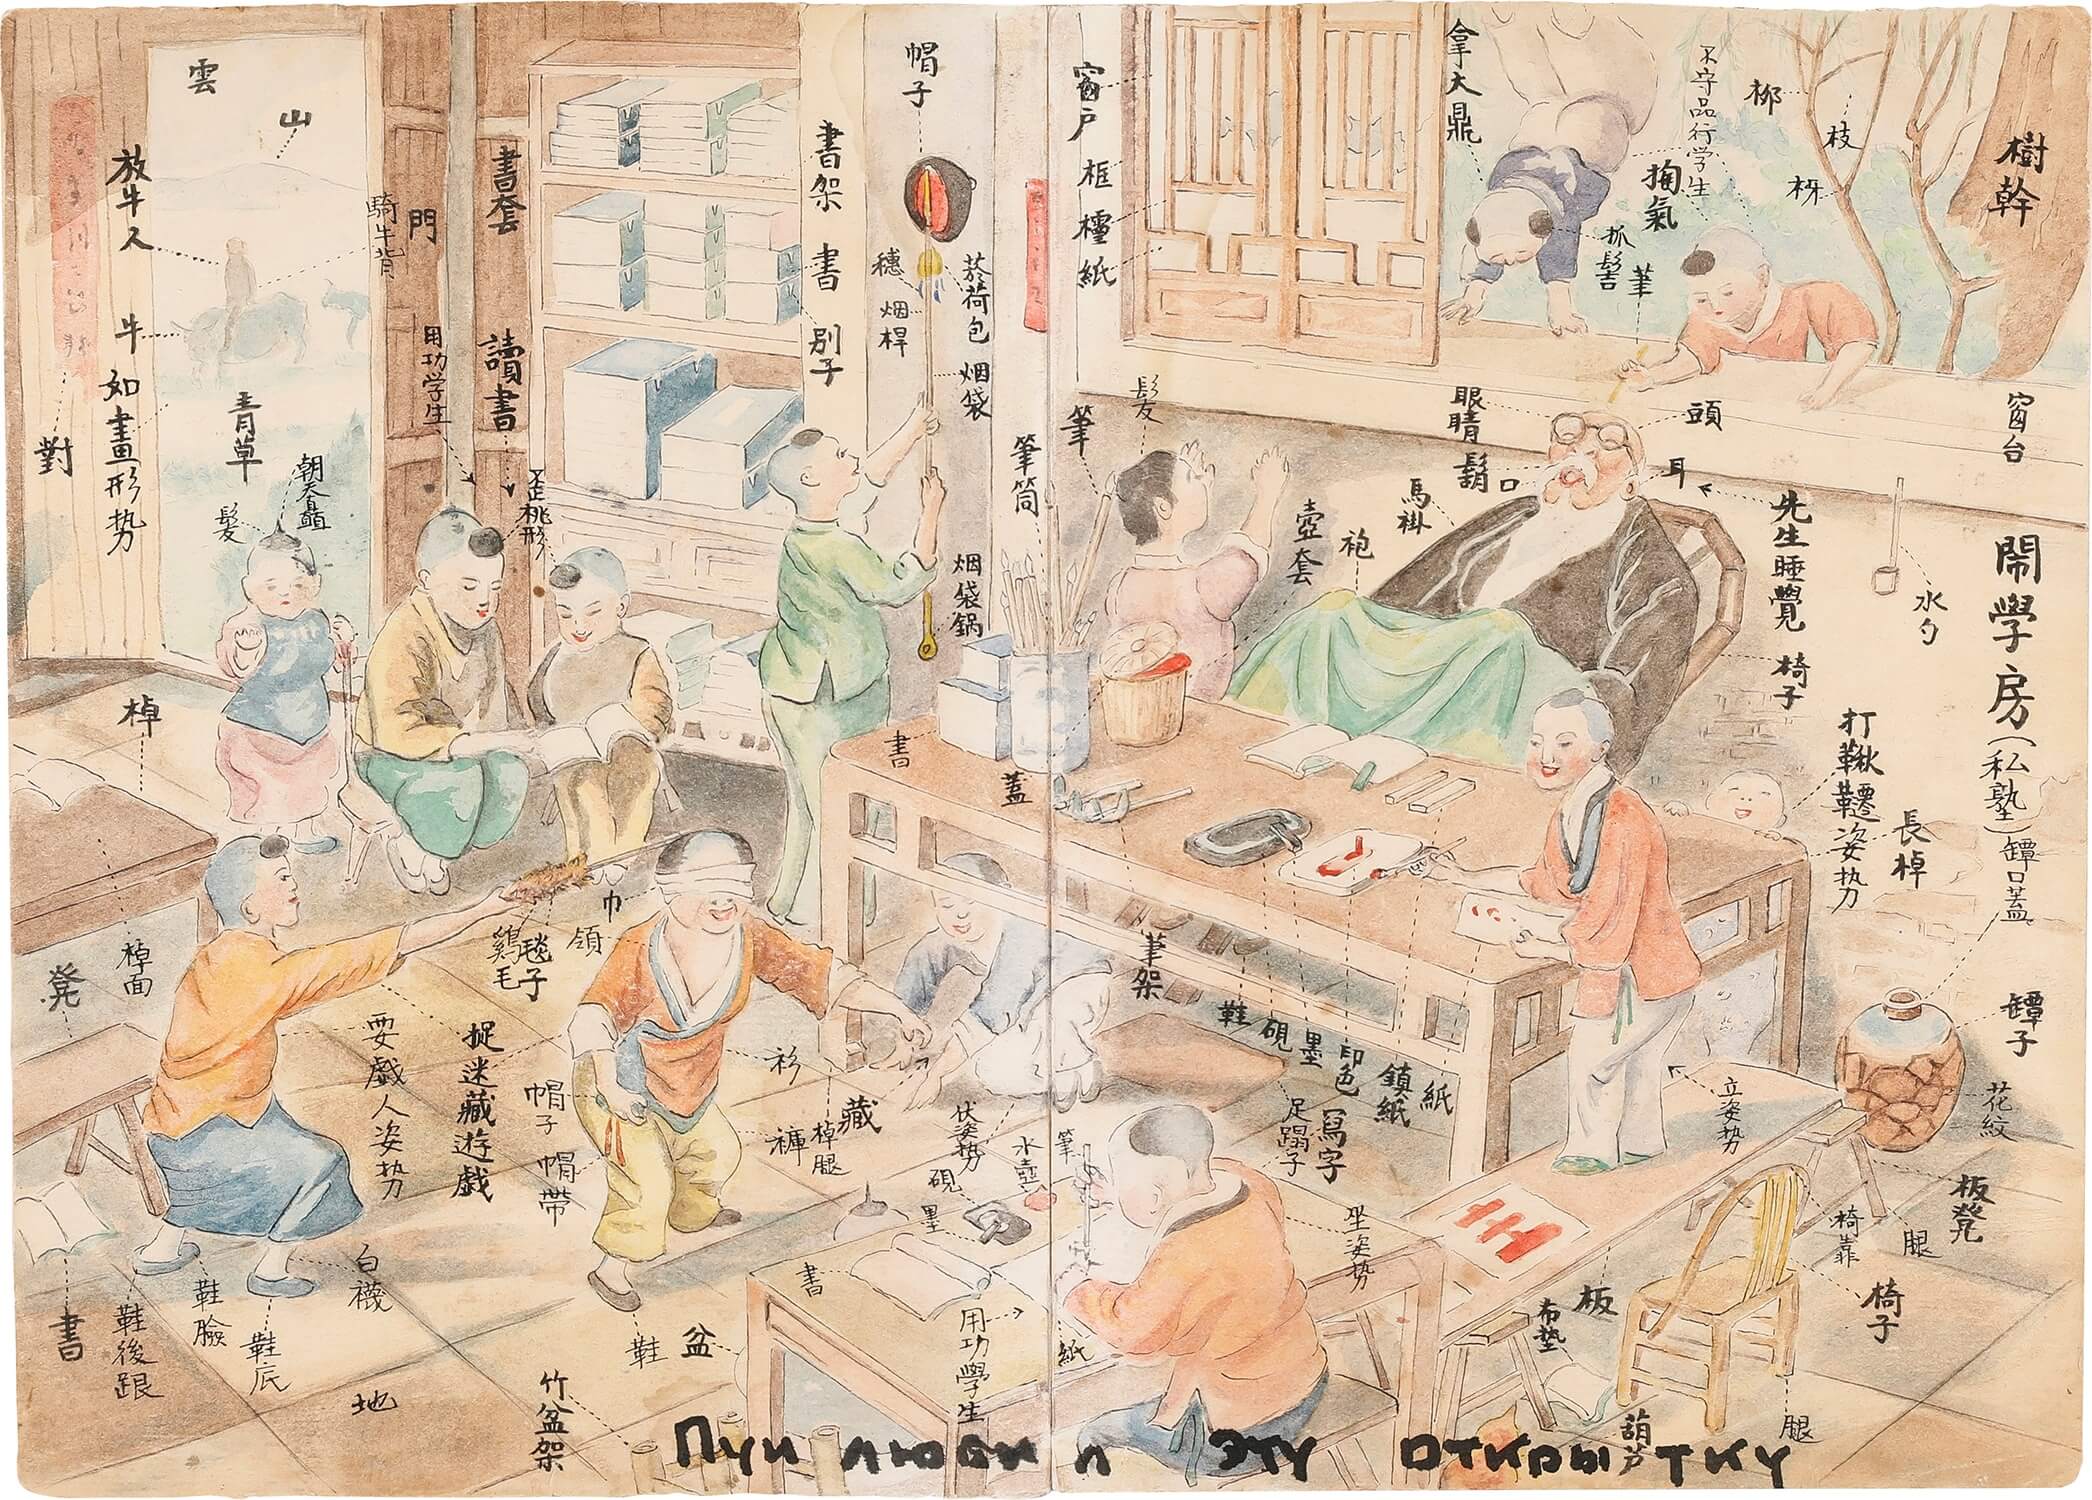 雲
山
放牛人
騎牛背
門
牛
如畫形势
青草
對
髮
朝天𩯭
書套
讀書
用功学生
歪桃形
書架
書
别子
帽子
穗
菸荷包
烟桿
烟袋
烟袋鍋
筆筒
筆
髮
窗户
框
櫺
紙
拿大鼎
不守品行学生
掏氣
抓髻
筆
柳
枝
杈
樹幹
窗台
眼睛
頭
鬍
口
耳
馬褂
袍
壺套
先生睡覺
椅子
水勺
鬧學房(私塾)
打鞦韆姿势
長棹
罈口蓋
罈子
花紋
棹
棹面
凳
書
蓋
巾
領
鷄毛
毯子
耍戲人姿势
捉迷藏遊戲
帽子
帽帶
衫
褲
棹腿
藏
伏姿势
筆架
鞋
硯
墨
印色
鎮紙
紙
寫字
足蹋子
立姿势
水壺
筆
硯
墨
書
用功學生
紙
坐姿势
板凳
腿
椅靠
椅子
板
布墊
葫芦
腿
白襪
鞋臉
鞋後跟
鞋底
書
地
鞋
盆
竹盆架
Пуи любил эту открытку